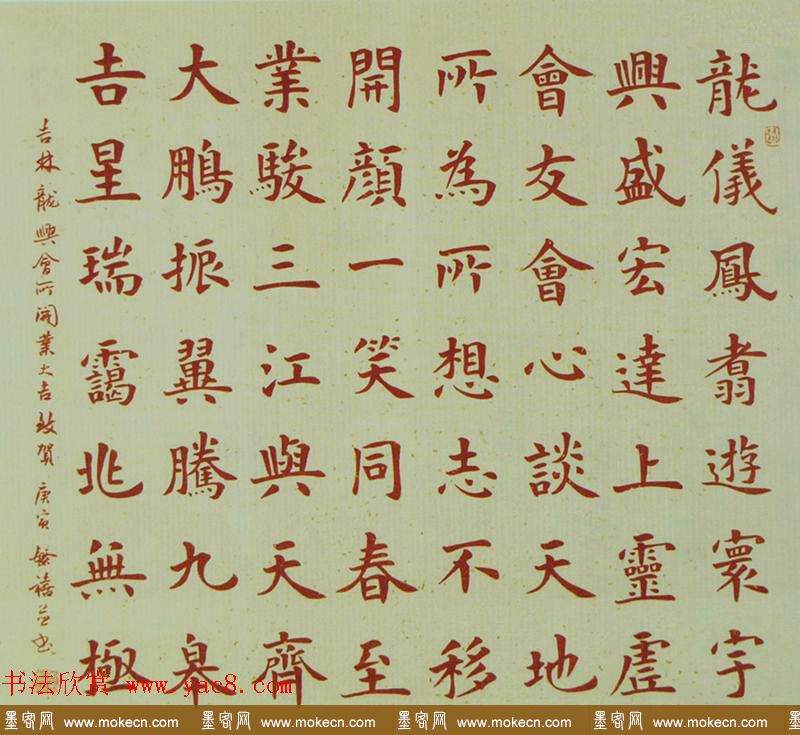 龍儀鳳翥遊寰宇
興盛宏達上靈虛
會友會心談天地
所為所想志不移
開顏一笑同春至
業駿三江與天齊
大鵬振翼騰九皋
吉星瑞靄兆無極
吉林龍興會所開業大吉致賀 庚寅
书法欣赏 www.yac8.com
墨客网 www.mokecn.com 墨客网 www.mokecn.com 墨客网 www.mokecn.com 墨客网 www.mokecn.com